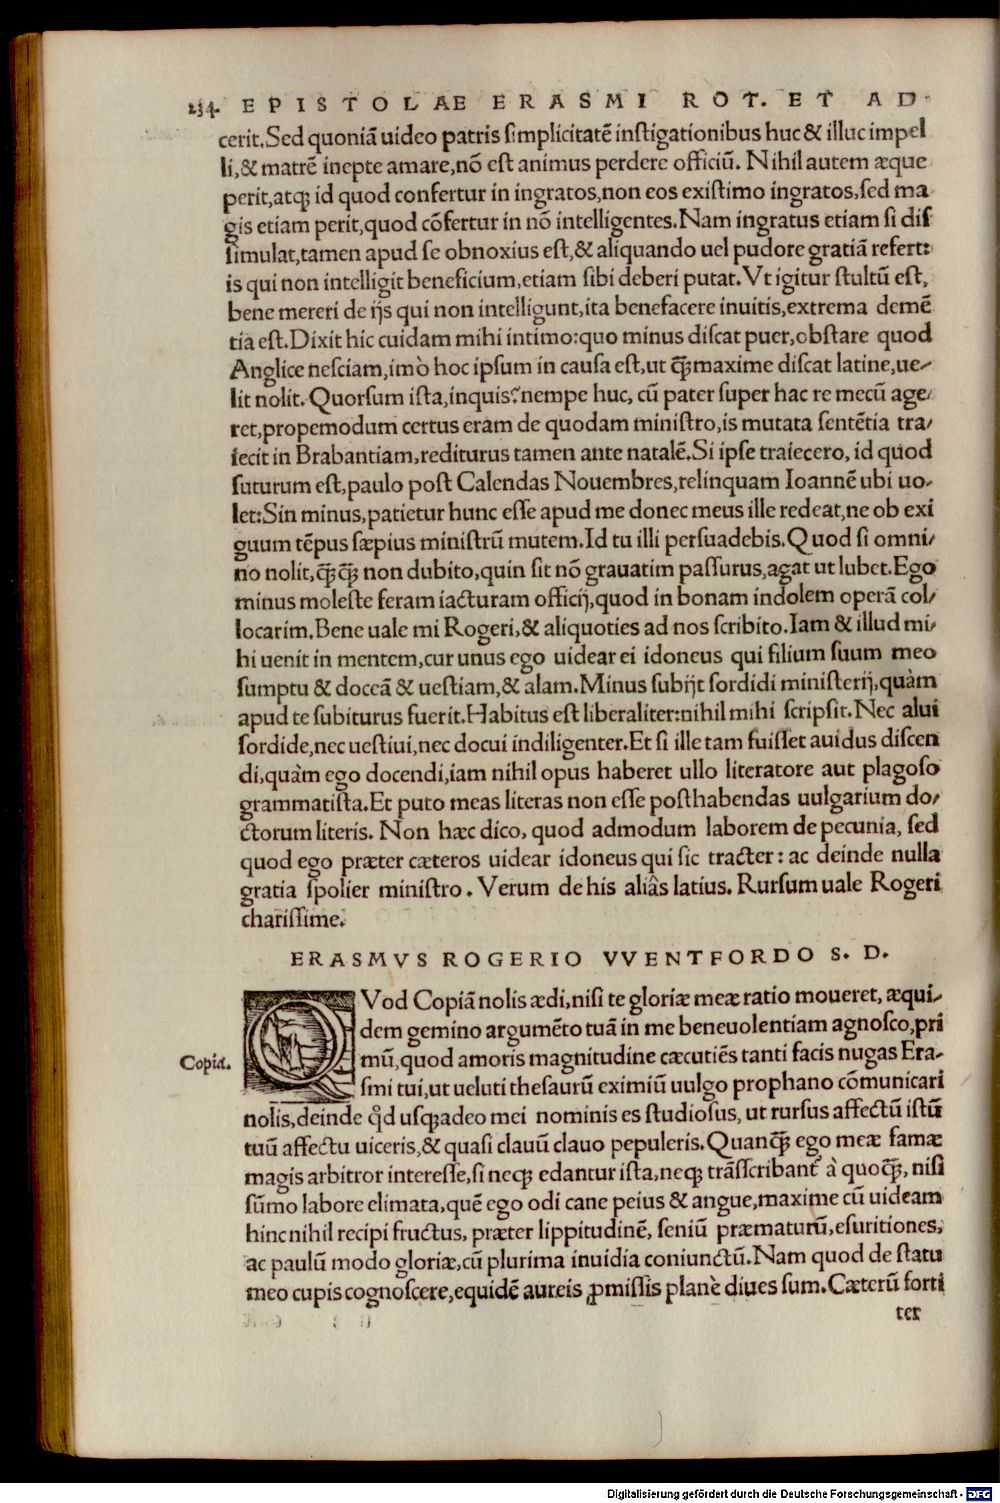 234. EPISTOLAE ERASMI ROT. ET AD
cerit. Sed quoniã uideo patris ſimplicitatẽ inſtigationibus huc & illuc impel
li, & matrẽ inepte amare, nõ eſt animus perdere officiũ. Nihil autem æque
perit, atq; id quod confertur in ingratos, non eos exiſtimo ingratos, ſed ma
gis etiam perit, quod cõfertur in nõ intelligentes. Nam ingratus etiam ſi diſ
ſimulat, tamen apud ſe obnoxius eſt, & aliquando uel pudore gratiã refert:
is qui non intelligit beneficium, etiam ſibi deberi putat. Vt igitur ſtultũ eſt,
bene mereri de ijs qui non intelligunt, ita benefacere inuitis, extrema demẽ
tia eſt. Dixit hic cuidam mihi intimo: quo minus diſcat puer, obſtare quod
Anglice neſciam, imò hoc ipſum in cauſa eſt, ut q̃maxime diſcat latine, ue-
lit nolit. Quorſum iſta, inquis? nempe huc, cũ pater ſuper hac re mecũ age-
ret, propemodum certus eram de quodam miniſtro, is mutata ſentẽtia tra-
iecit in Brabantiam, rediturus tamen ante natalẽ. Si ipſe traiecero, id quod
futurum eſt, paulo poſt Calendas Nouembres, relinquam Ioannẽ ubi uo-
let: Sin minus, patietur hunc eſſe apud me donec meus ille redeat, ne ob exi
guum tẽpus ſæpius miniſtrũ mutem. Id tu illi perſuadebis. Quod ſi omni-
no nolit, q̃q̃ non dubito, quin ſit nõ grauatim paſſurus, agat ut lubet. Ego
minus moleſte feram iacturam officij, quod in bonam indolem operã col-
locarim. Bene uale mi Rogeri, & aliquoties ad nos ſcribito. Iam & illud mi-
hi uenit in mentem, cur unus ego uidear ei idoneus qui filium ſuum meo
ſumptu & doceã & ueſtiam, & alam. Minus ſubijt ſordidi miniſterij, quàm
apud te ſubiturus fuerit. Habitus eſt liberaliter: nihil mihi ſcripſit. Nec alui
ſordide, nec ueſtiui, nec docui indiligenter. Et ſi ille tam fuiſſet auidus diſcen
di, quàm ego docendi, iam nihil opus haberet ullo literatore aut plagoſo
grammatiſta. Et puto meas literas non eſſe poſthabendas uulgarium do-
ctorum literis. Non hæc dico, quod admodum laborem de pecunia, ſed
quod ego præter cæteros uidear idoneus qui ſic tracter: ac deinde nulla
gratia ſpolier miniſtro. Verum de his aliâs latius. Rurſum uale Rogeri
chariſſime.
ERASMVS ROGERIO VVENTFORDO S. D.
QVod Copiã nolis ædi, niſi te gloriæ meæ ratio moueret, æqui-
dem gemino argumẽto tuã in me beneuolentiam agnoſco, pri
Copia. mũ, quod amoris magnitudine cæcutiẽs tanti facis nugas Era-
ſmi tui, ut ueluti theſaurũ eximiũ uulgo prophano cõmunicari
nolis, deinde q̃d uſq;adeo mei nominis es ſtudioſus, ut rurſus affectũ iſtũ
tuũ affectu uiceris, & quaſi clauũ clauo pepuleris. Quanq̃ ego meæ famæ
magis arbitror intereſſe, ſi neq; edantur iſta, neq; trãſſcribant᷑ à quoq̃, niſi
ſũmo labore elimata, quẽ ego odi cane peius & angue, maxime cũ uideam
hinc nihil recipi fructus, præter lippitudinẽ, ſeniũ præmaturũ, eſuritiones,
ac paulũ modo gloriæ, cũ plurima inuidia coniunctũ. Nam quod de ſtatu
meo cupis cognoſcere, equidẽ aureis ꝓmiſſis planè diues ſum. Cæterũ forti
ter
Digitalisierung gefördert durch die Deutsche Forschungsgemeinschaft - DFG